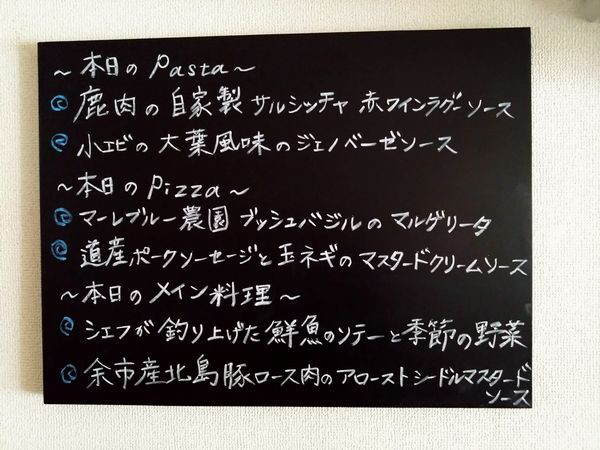 ～本日の Pasta～
鹿肉の自家製サルシッチャ 赤ワインラグーソース
小エビの大葉風味のジェノベーゼソース
～本日の Pizza～
マーレブルー農園 ブッシュバジルの マルゲリータ
道産ポークソーセージと玉ネギのマスタードクリームソース
～本日のメイン料理～
シェフが釣り上げた鮮魚のソテーと季節の野菜
余市産北島豚ロース肉のアローストシードルマスタード
ソース